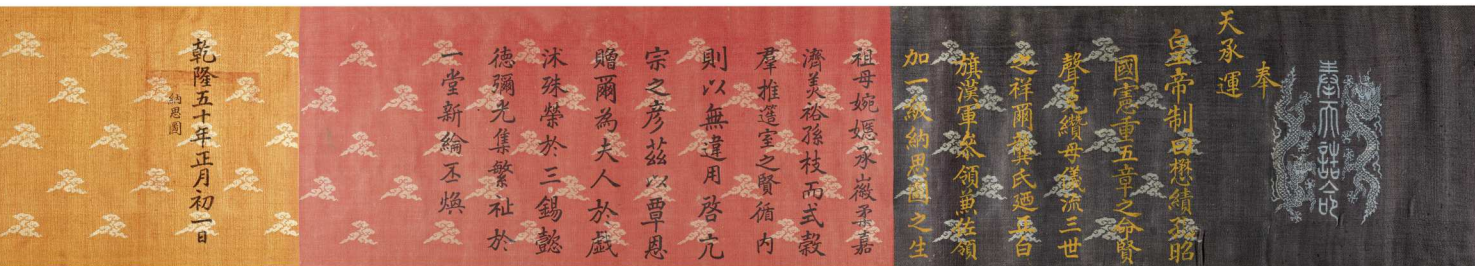 奉天誥命
奉
天承運
皇帝制曰懋績昭
國憲重五章之命賢
聲克纘母儀流三世
之祥爾龔氏廼正白
旗漢軍參領兼佐領
加一級納恩圖之生
祖母婉嫕承徽柔嘉
濟美裕孫枝而式穀
羣推簉室之賢循內
則以無違用啓亢
宗之彥茲以覃恩
贈爾為夫人於戲
沐殊榮於三錫懿
德彌光集繁祉於
一堂新綸丕煥
乾隆五十年正月初一日
納恩圖